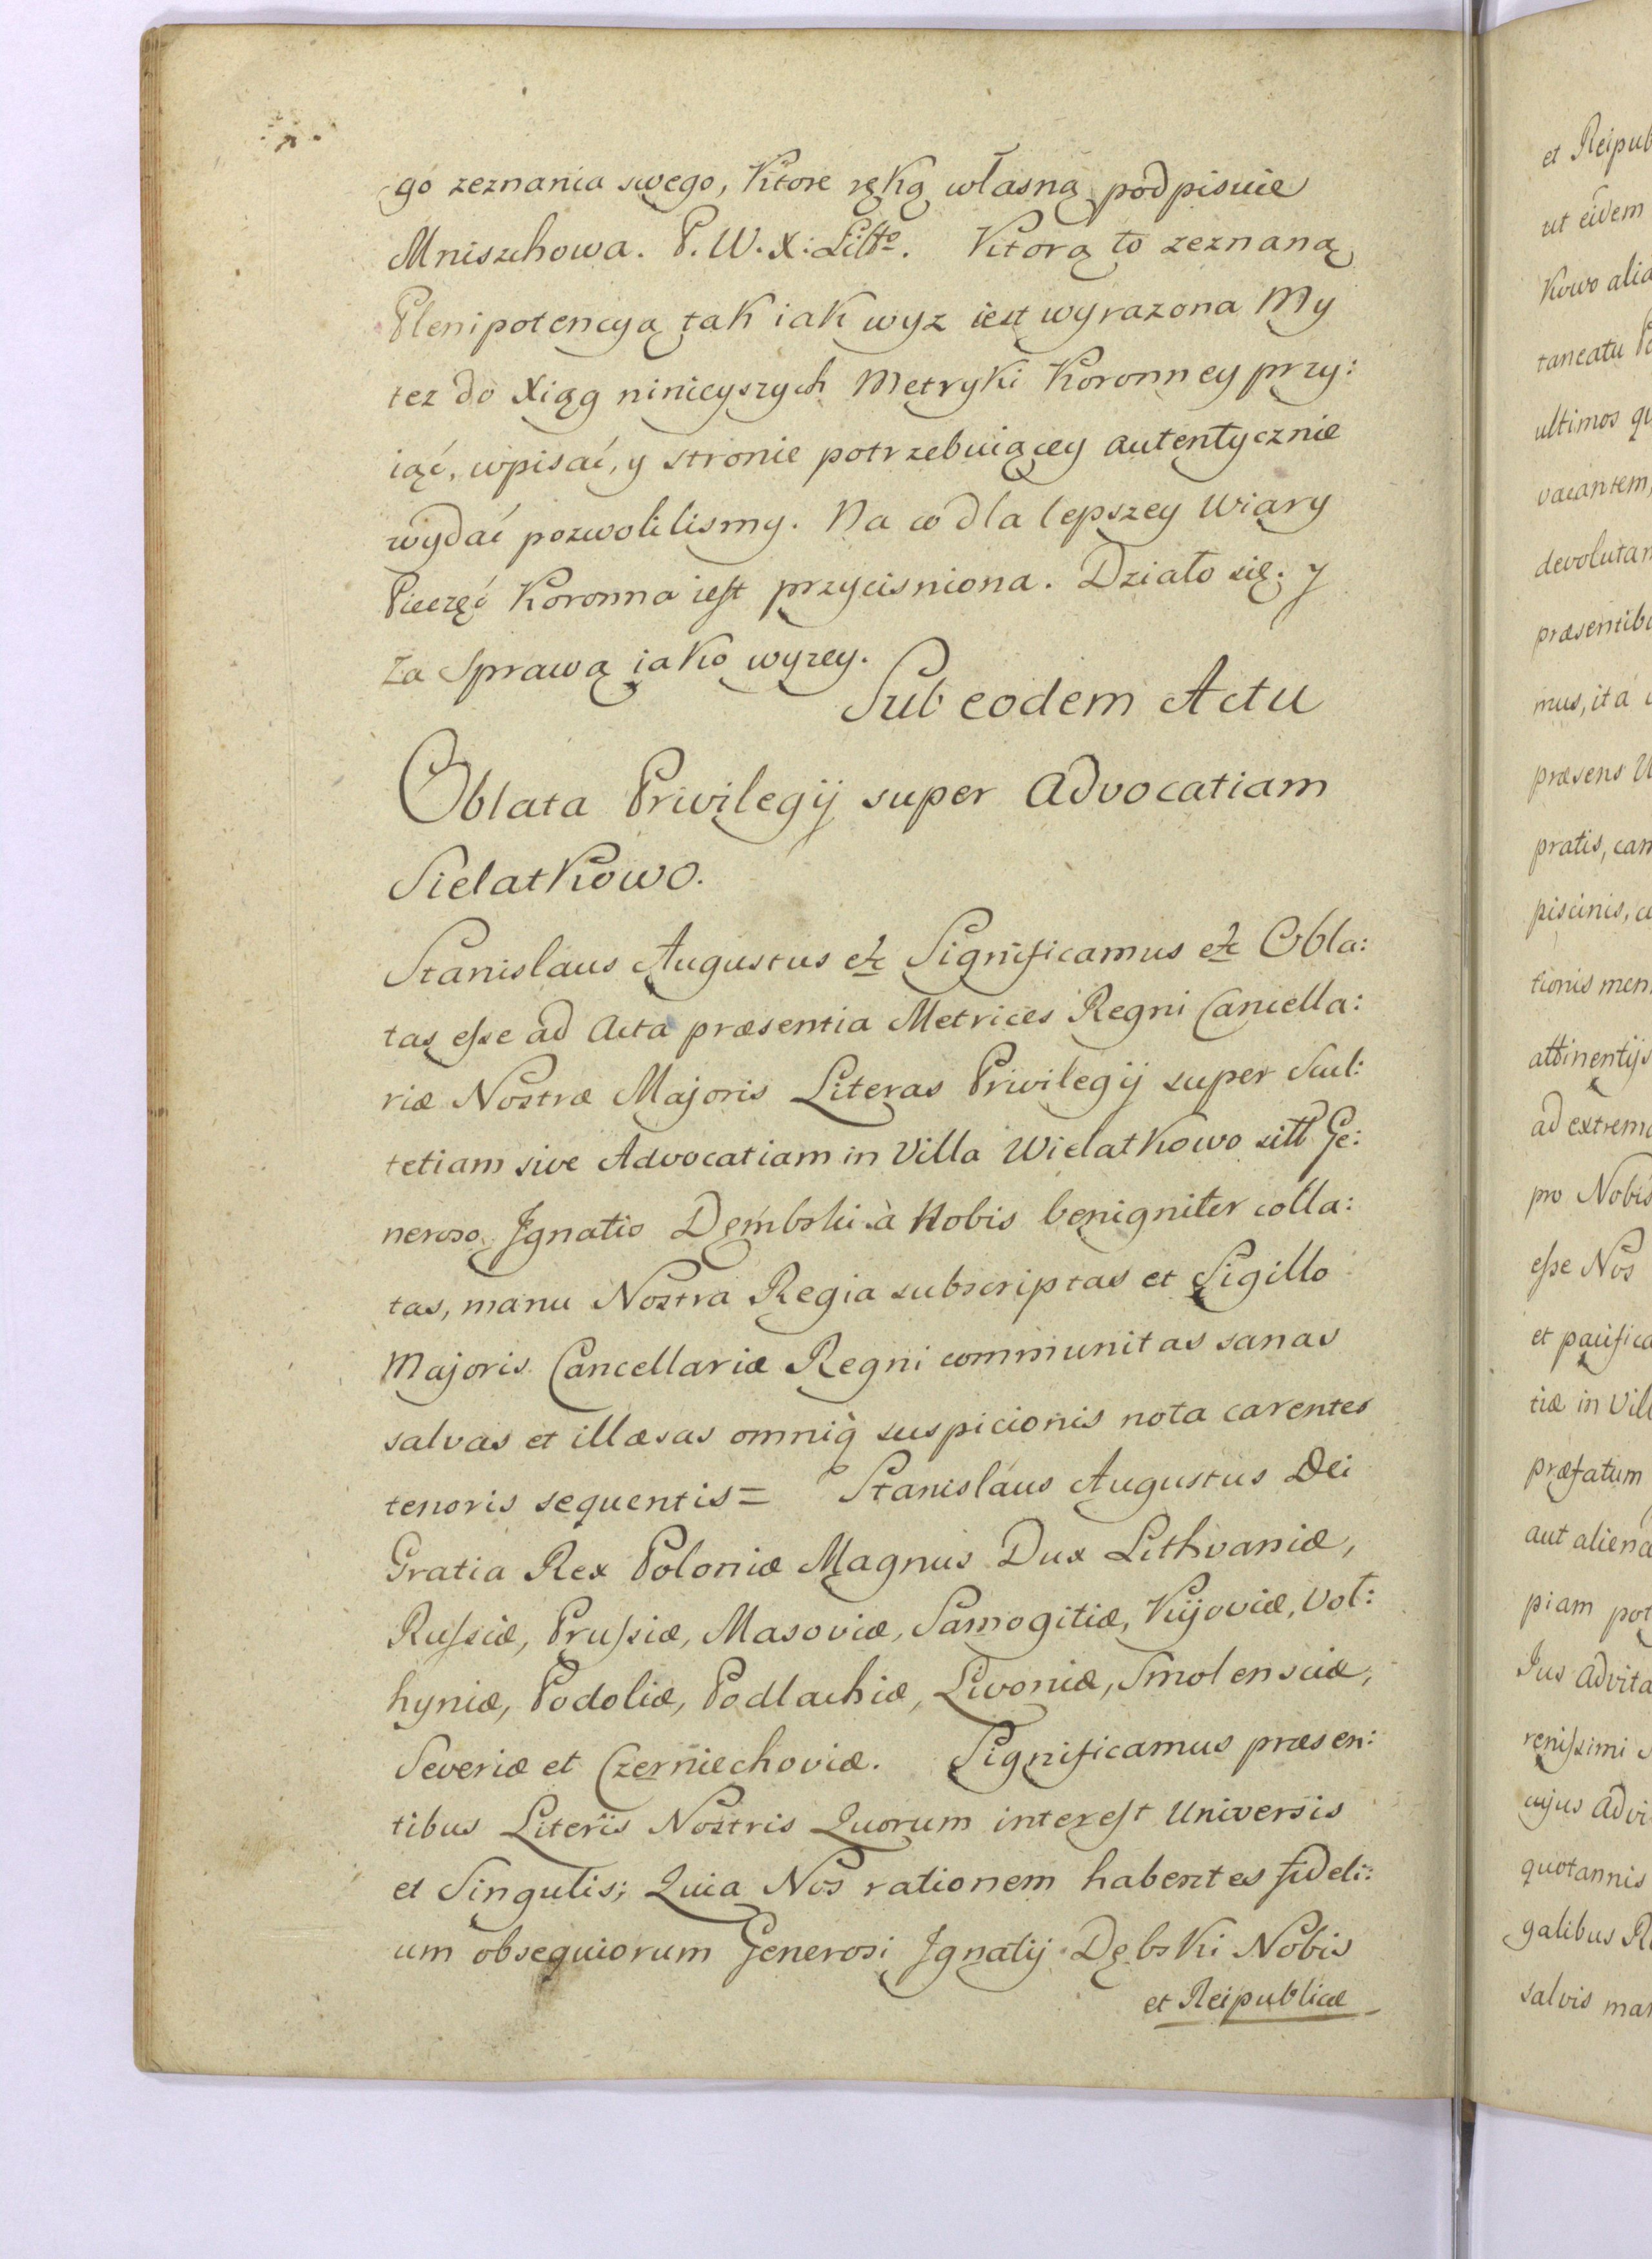 go zeznania swego, Ktore ręką własną podpisuie
Mniszchowa. P. W. X: Litto. Ktorą to zeznaną
Plenipotencyą tak iak wyz iest wyrazona My
tez do Xiąg ninieyszych Metryki Koronney przy:
iąć, wpisać, y stronie potrzebuiącey autentycznie
wydać pozwolilismy. Na co dla lepszey Wiary
Pieczęć Koronna iest przycisniona. Działo się. y
za Sprawą iako wyzey.
Sub eodem Actu
Oblata Privilegij super Advocatiam
Sielatkowo.
Stanislaus Augustus etc Significamus etc Obla:
tas esse ad Acta præsentia Metrices Regni Cancella:
riæ Nostræ Majoris Literas Privilegij super Scul:
tetiam sive Advocatiam in Villa Wielatkowo sitt Ge:
neroso Ignatio Dęmbski à Nobis benigniter colla:
tas, manu Nostra Regia subscriptas et Sigillo
Majoris Cancellariæ Regni communitas sanas
salvas et illæsas omniq̀ suspicionis nota carentes
tenoris sequentis = Stanislaus Augustus Dei
Gratia Rex Poloniæ Magnus Dux Lithvaniæ,
Russiæ, Prussiæ, Masoviæ, Samogitiæ, Kijoviæ, Vol:
hyniæ, Podoliæ, Podlachiæ, Livoniæ, Smolensciæ,
Severiæ et Czerniechoviæ. Significamus præsen:
tibus Literis Nostris Quorum interest Universis
et Singulis; Quia Nos rationem habentes fideli:
um obsequiorum Generosi Ignatij Dębski Nobis
et Reipublicæ
et Reipub
ut eidem
Kowo alia
taneatu
ultimos qu
vacantem,
devolutam
præsentibu
mus, ita
præsens
pratis, cam
piscinis,
tionis men
attinentijs
ad extrema
pro Nobis
esse Nos
et pacifica
tiæ in Vill
præfatum
aut aliena
piam pot
Jus advita
renissimi
cujus advi
quotannis
galibus
salvis man